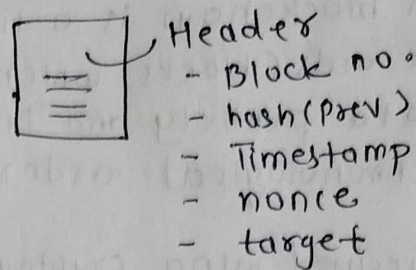 Header
- Block no.
- hash(Prev)
- Timestamp
- nonce
- target